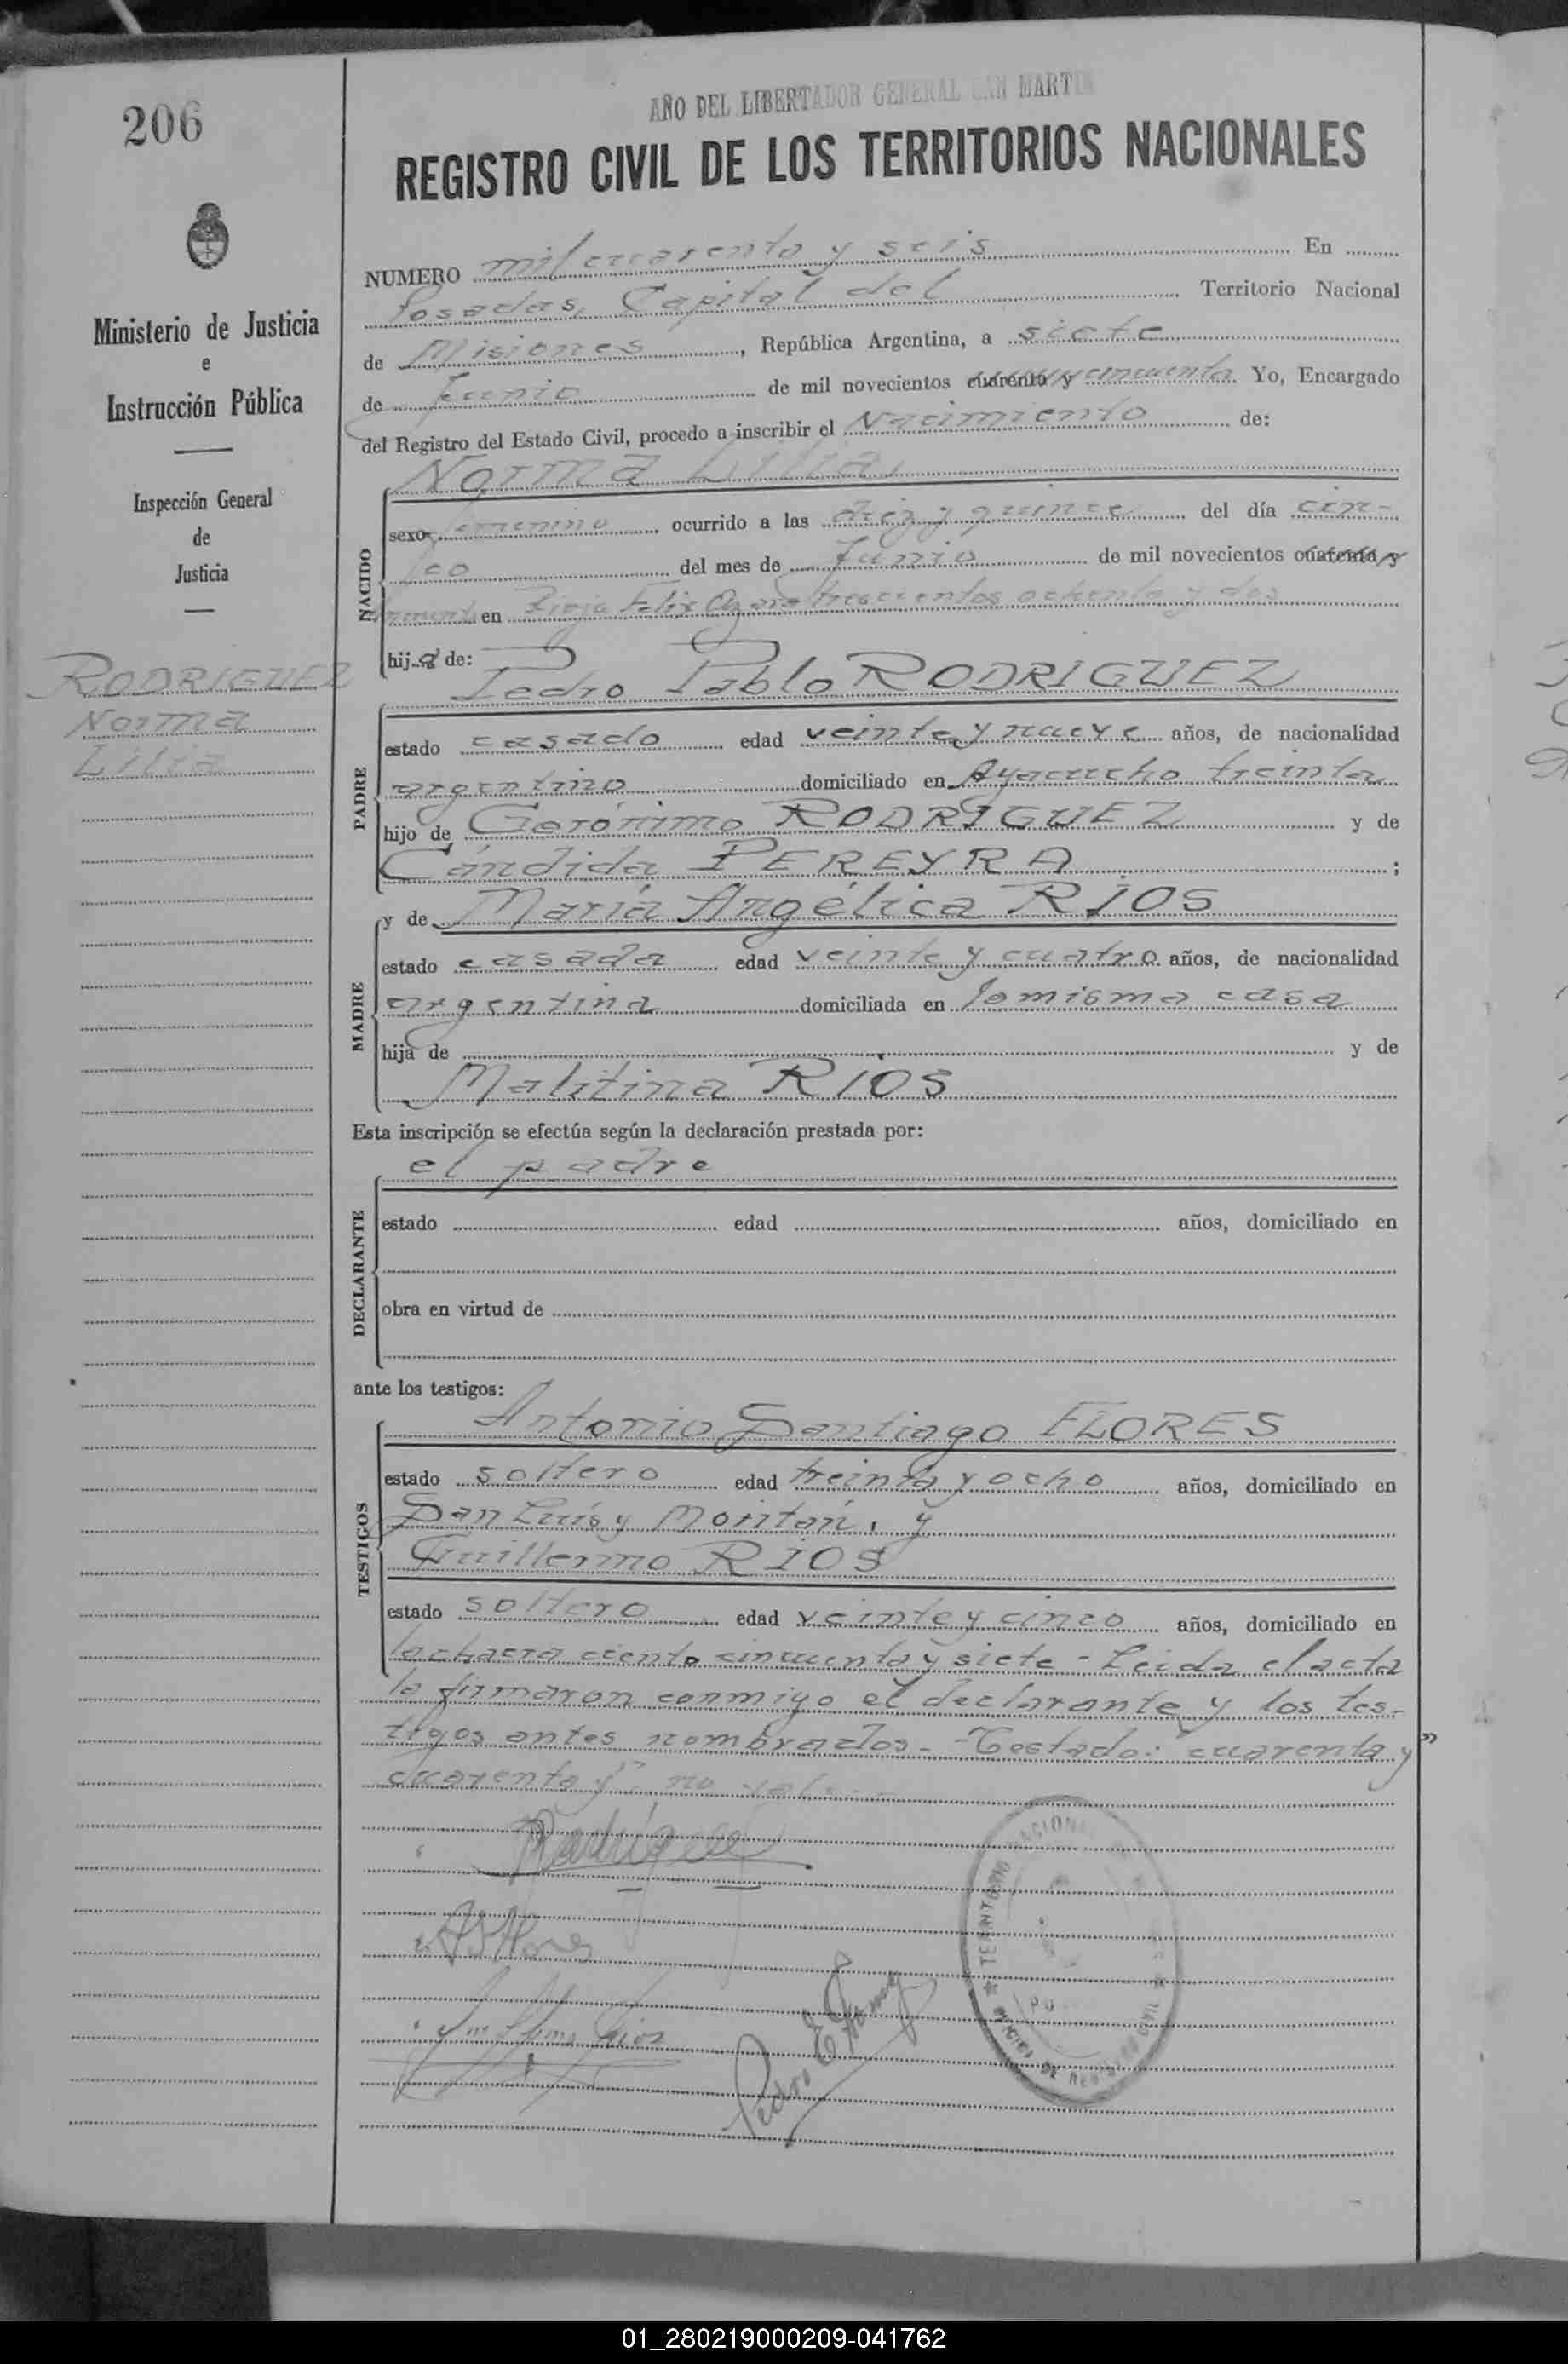 206
AÑO DEL LIBERTADOR GENERAL SAN MARTIN
REGISTRO CIVIL DE LOS TERRITORIOS NACIONALES
Ministerio de Justicia
e
Instrucción Pública
Inspección General
de
Justicia
RODRIGUEZ
Norma
Lilia
NUMERO mil cuarenta y seis En
Posadas, Capital del Territorio Nacional
de Misiones, República Argentina, a siete
de Junio de mil novecientos cuarenta y cincuenta Yo, Encargado
del Registro del Estado Civil, procedo a inscribir el Nacimiento de:
Norma Lilia
NACIDO
sexo femenino ocurrido a las diez y quince del día cin-
co del mes de Junio de mil novecientos cuarenta y
cincuenta en Rioja Felix Azara trescientos ochenta y dos
hij a de:
Pedro Pablo RODRIGUEZ
PADRE
estado casado edad veinte y nueve años, de nacionalidad
argentino domiciliado en Ayacucho treinta
hijo de Gerónimo RODRIGUEZ y de
Cándida PEREYRA ;
y de María Angélica RIOS
MADRE
estado casada edad veinte y cuatro años, de nacionalidad
argentina domiciliada en la misma casa
hija de y de
Malitina RIOS
Esta inscripción se efectúa según la declaración prestada por:
el padre
DECLARANTE
estado edad años, domiciliado en
obra en virtud de
ante los testigos:
Antonio Santiago FLORES
TESTIGOS
estado soltero edad treinta y ocho años, domiciliado en
San Luis y Moritán, y
Guillermo RIOS
estado soltero edad veinte y cinco años, domiciliado en
la chacra ciento cincuenta y siete - Leida el acta
la firmaron conmigo el declarante y los tes-
tigos antes nombrados - Testado: "cuarenta y"
"cuarenta y" no vale.
Rodríguez
A S Flores
Guillermo Rios
Pedro E
TERRITORIO NACIONAL
REGISTRO CIVIL
01_280219000209-041762